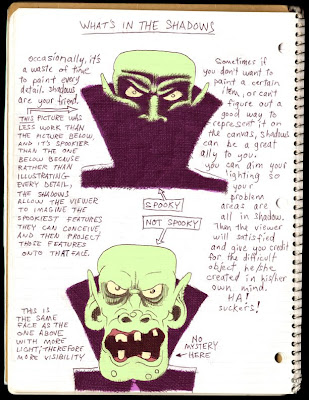 WHAT'S IN THE SHADOWS
occasionally, it's
a waste of time
to paint every
detail. Shadows
are your friend.
THIS PICTURE WAS
LESS WORK THAN
THE PICTURE BELOW,
AND IT'S SPOOKIER
THAN THE ONE
BELOW BECAUSE
RATHER THAN
ILLUSTRATING
EVERY DETAIL,
THE SHADOWS
ALLOW THE VIEWER
TO IMAGINE THE
SPOOKIEST FEATURES
THEY CAN CONCEIVE,
AND THEN PROJECT
THOSE FEATURES
ONTO THAT FACE.
Sometimes if
you don't want to
paint a certain
item, or can't
figure out a
good way to
represent it on
the canvas, shadows
can be a great
ally to you.
you can aim your
lighting so
your
problem
areas are
all in shadow.
Then the viewer
will satisfied
and give you credit
for the difficult
object he/she
created in his/her
own mind.
HA!
suckers!
SPOOKY
NOT SPOOKY
THIS IS
THE SAME
FACE AS THE
ONE ABOVE
WITH MORE
LIGHT, THEREFORE
MORE VISIBILITY
NO
MYSTERY
HERE